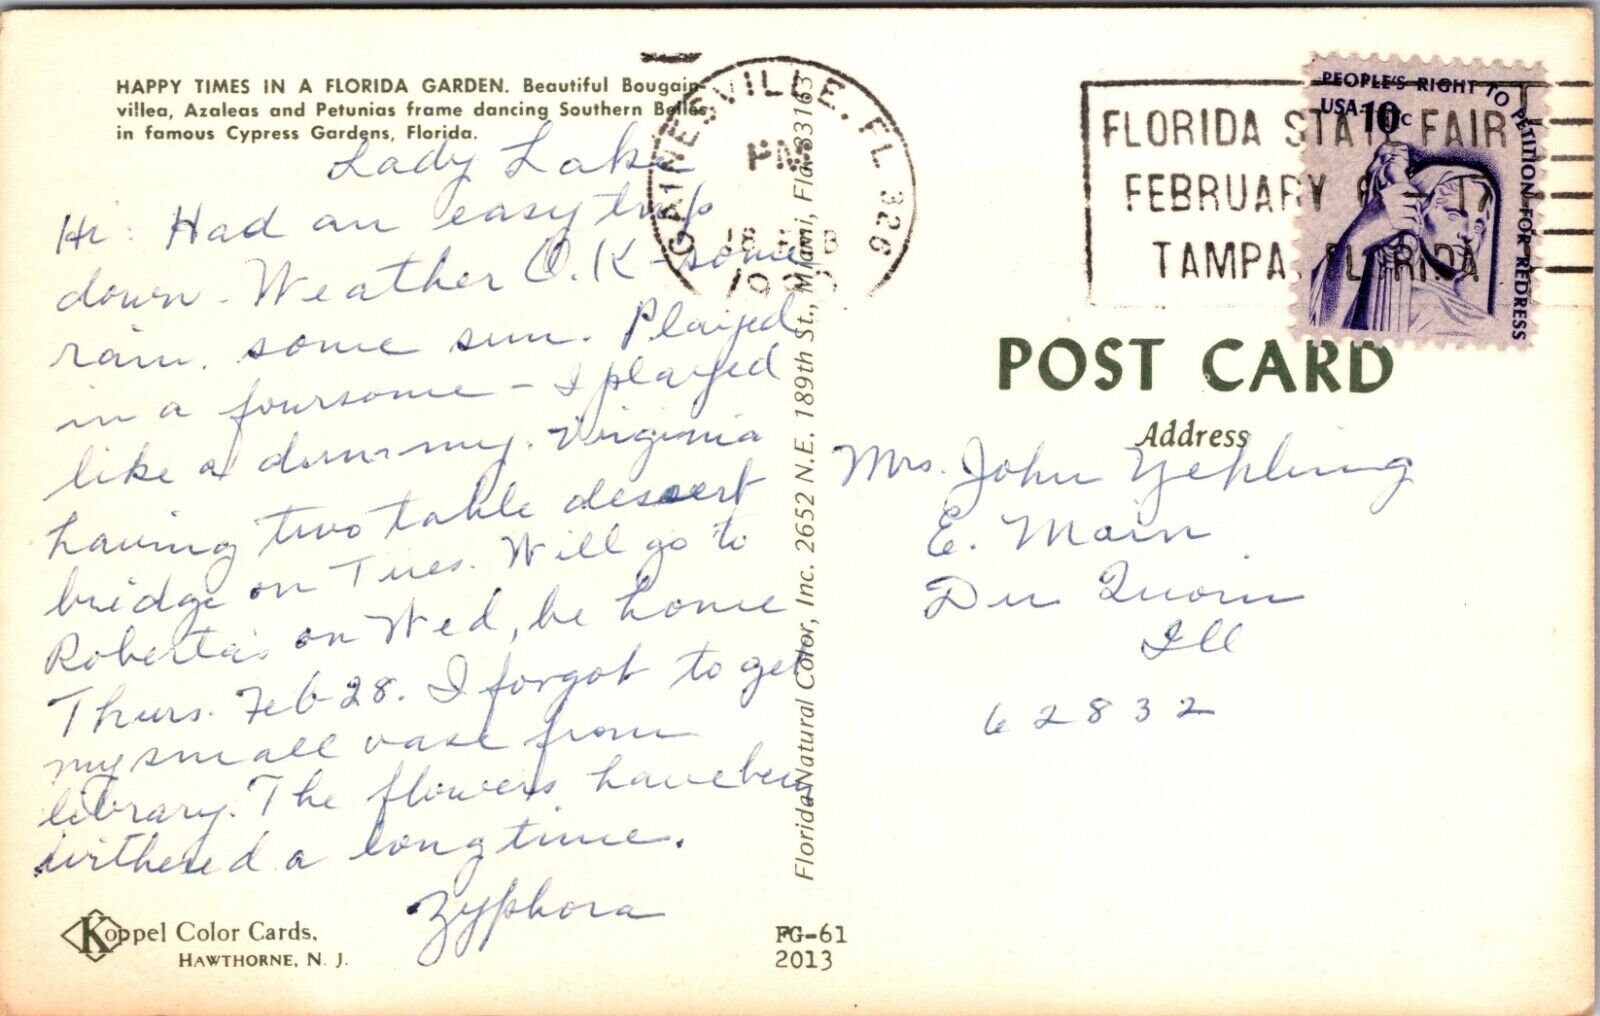 HAPPY TIMES IN A FLORIDA GARDEN. Beautiful Bougain-
villea, Azaleas and Petunias frame dancing Southern Belles
in famous Cypress Gardens, Florida.
Lady Lake
Hi: Had an easy trip
down - Weather O.K - some
rain, some sun. Played
in a foursome - I played
like a dummy. Virginia
having two table dessert
bridge on Tues. Will go to
Roberta's on Wed, be home
Thurs. Feb 28. I forgot to get
my small vase from
library. The flowers have been
withered a long time.
Zyphora
Koppel Color Cards,
HAWTHORNE, N. J.
FG-61
2013
Florida Natural Color, Inc. 2652 N.E. 189th St., Miami, Fla. 33163
GAINESVILLE, FL 326
PM
FLORIDA STATE FAIR
FEBRUARY 6 - 17
TAMPA, FLORIDA
PEOPLE'S RIGHT TO PETITION FOR REDRESS
USA 10c
POST CARD
Address
Mrs. John Yehling
E. Main
Du Quoin
Ill
62832